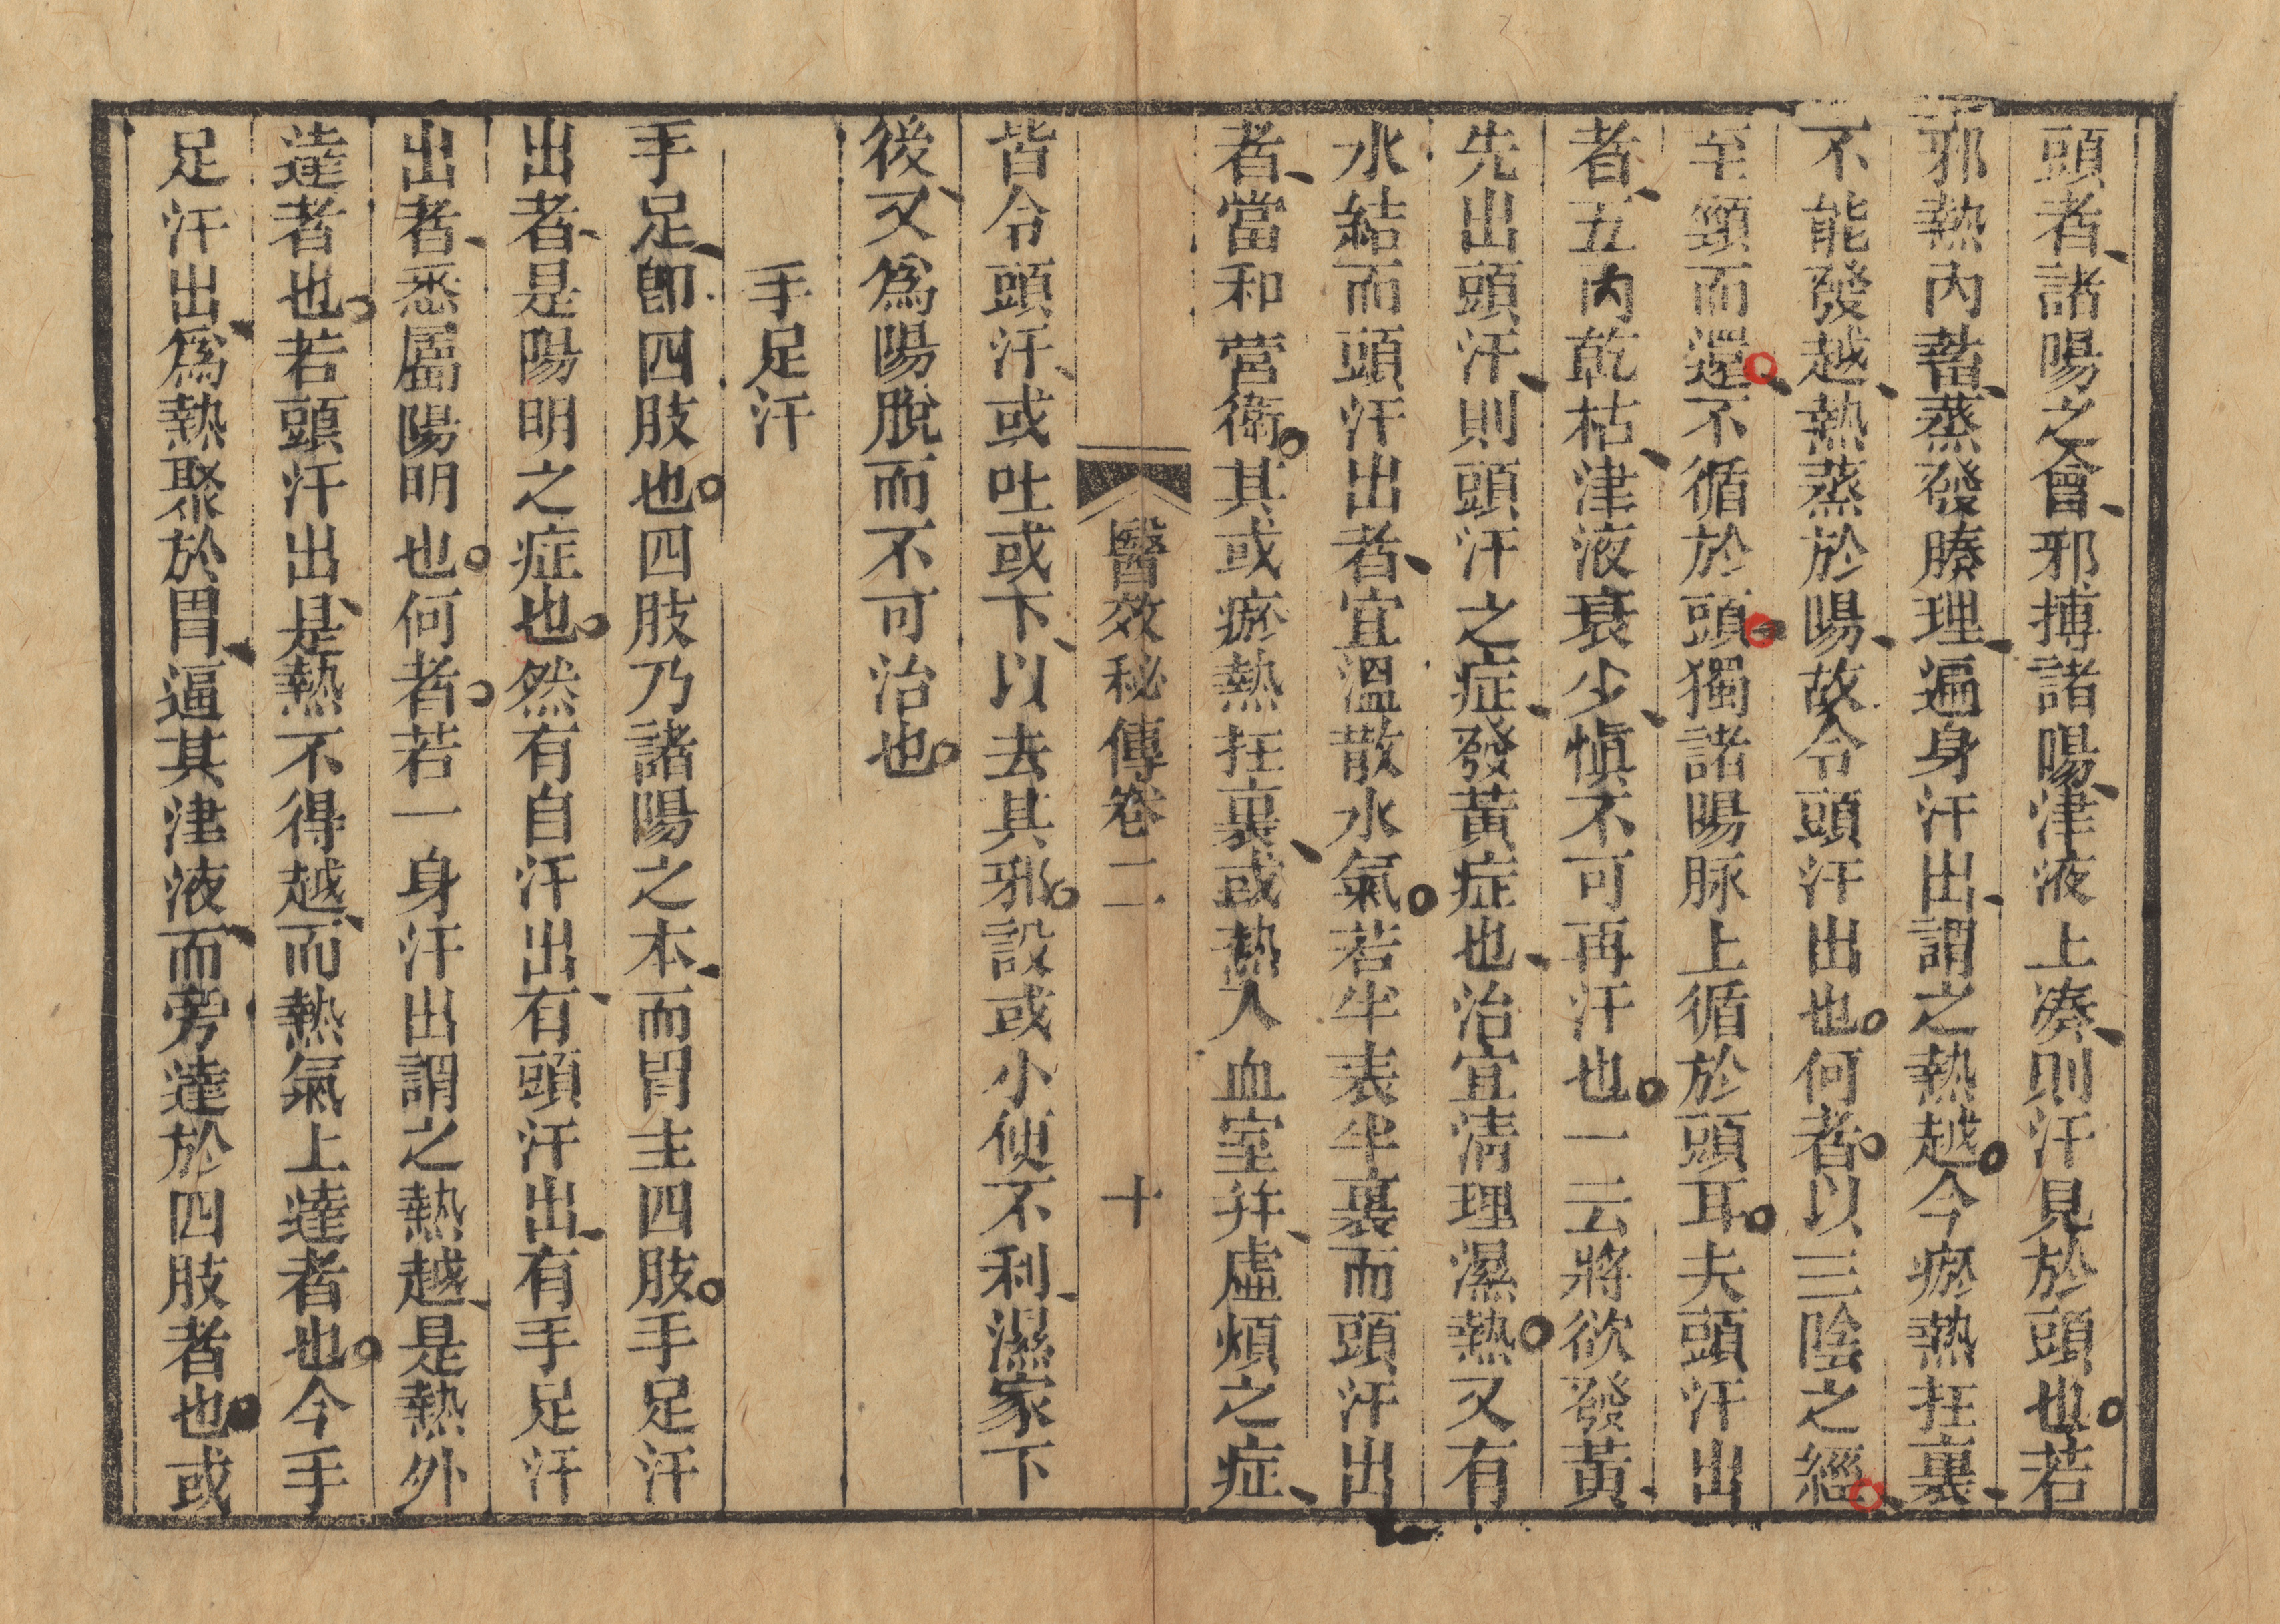 頭者、諸陽之會、邪搏諸陽、津液上湊、則汗見於頭也。若
邪熱內蓄、蒸發腠理、遍身汗出、謂之熱越。今瘀熱在裏、
不能發越、熱蒸於陽、故令頭汗出也。何者。以三陰之經、
至頸而還、不循於頭、獨諸陽脉上循於頭耳。夫頭汗出
者、五內乾枯、津液衰少、愼不可再汗也。一云將欲發黃、
先出頭汗、則頭汗之症、發黃症也、治宜清理濕熱。又有
水結而頭汗出者、宜溫散水氣。若半表半裏而頭汗出
者、當和營衛。其或瘀熱在裏、或熱入血室、并虛煩之症、
醫效秘傳卷二 十
皆令頭汗、或吐或下、以去其邪。設或小便不利、濕家下
後、又爲陽脫而不可治也。
手足汗
手足、卽四肢也。四肢乃諸陽之本、而胃主四肢。手足汗
出者、是陽明之症也。然有自汗出、有頭汗出、有手足汗
出者、悉屬陽明也。何者。若一身汗出謂之熱越、是熱外
達者也。若頭汗出、是熱不得越、而熱氣上達者也。今手
足汗出、爲熱聚於胃、逼其津液、而旁達於四肢者也。或